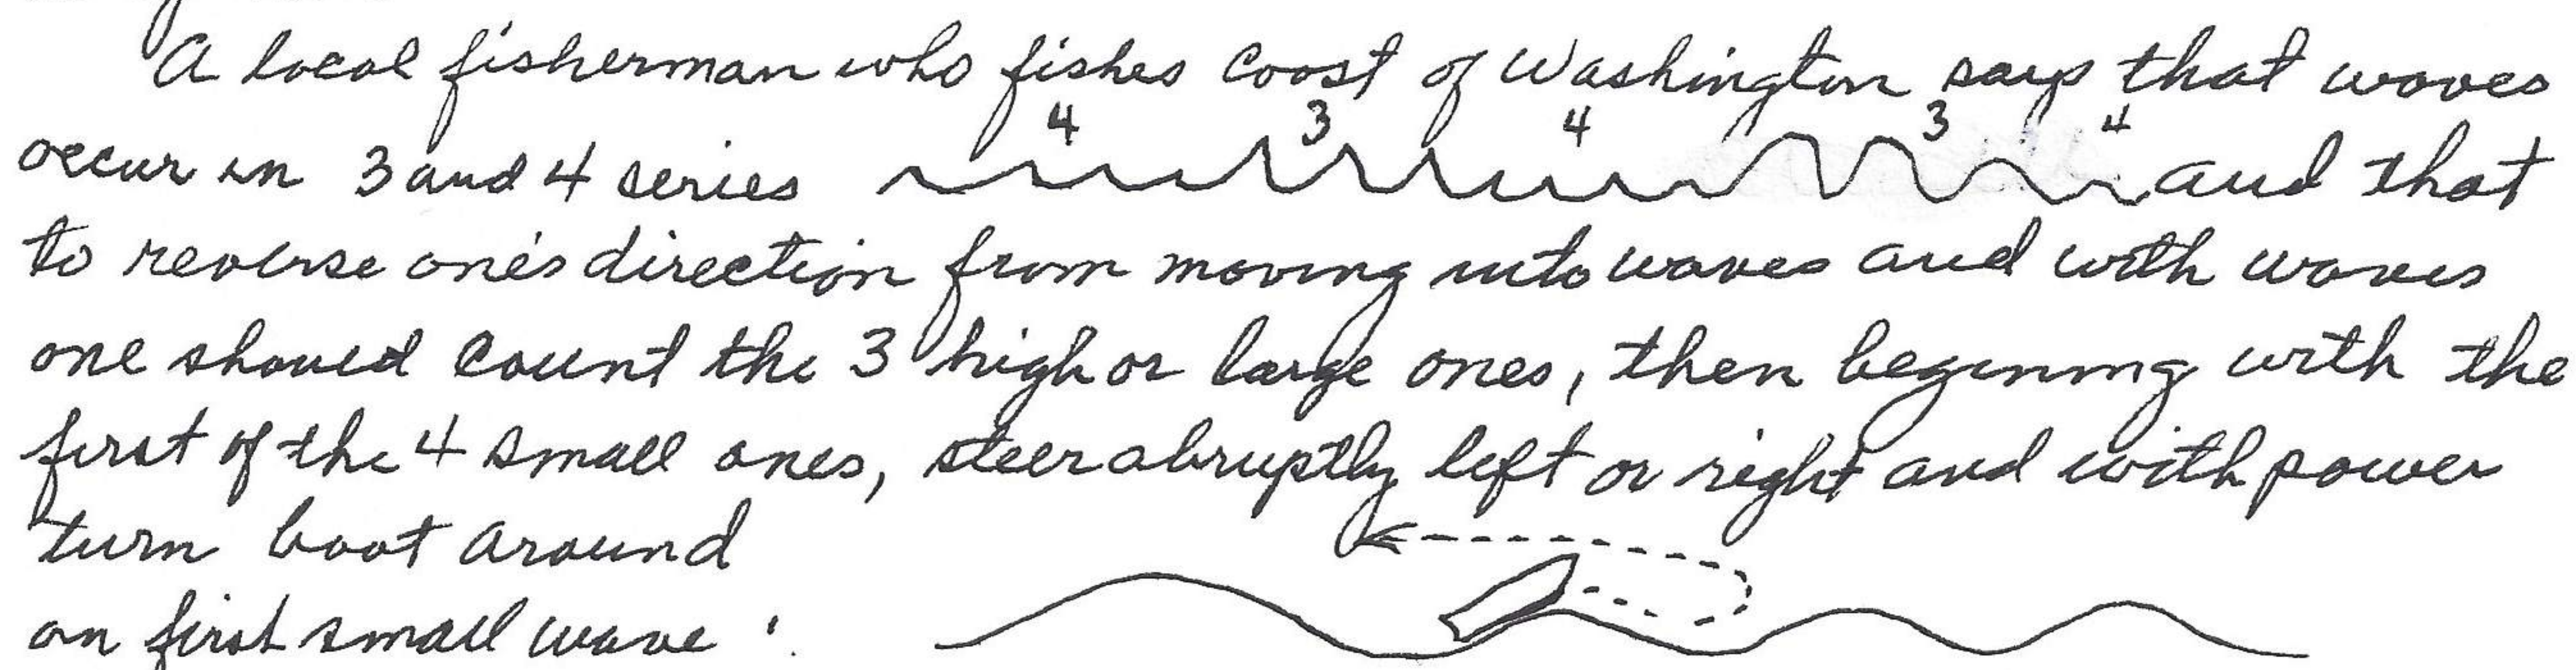 A local fisherman who fishes coast of Washington says that waves
4 3 4 3 4
occur in 3 and 4 series and that
to reverse one's direction from moving into waves and with waves
one should count the 3 high or large ones, then begining with the
first of the 4 small ones, steer abruptly left or right and with power
turn boat around
on first small wave :